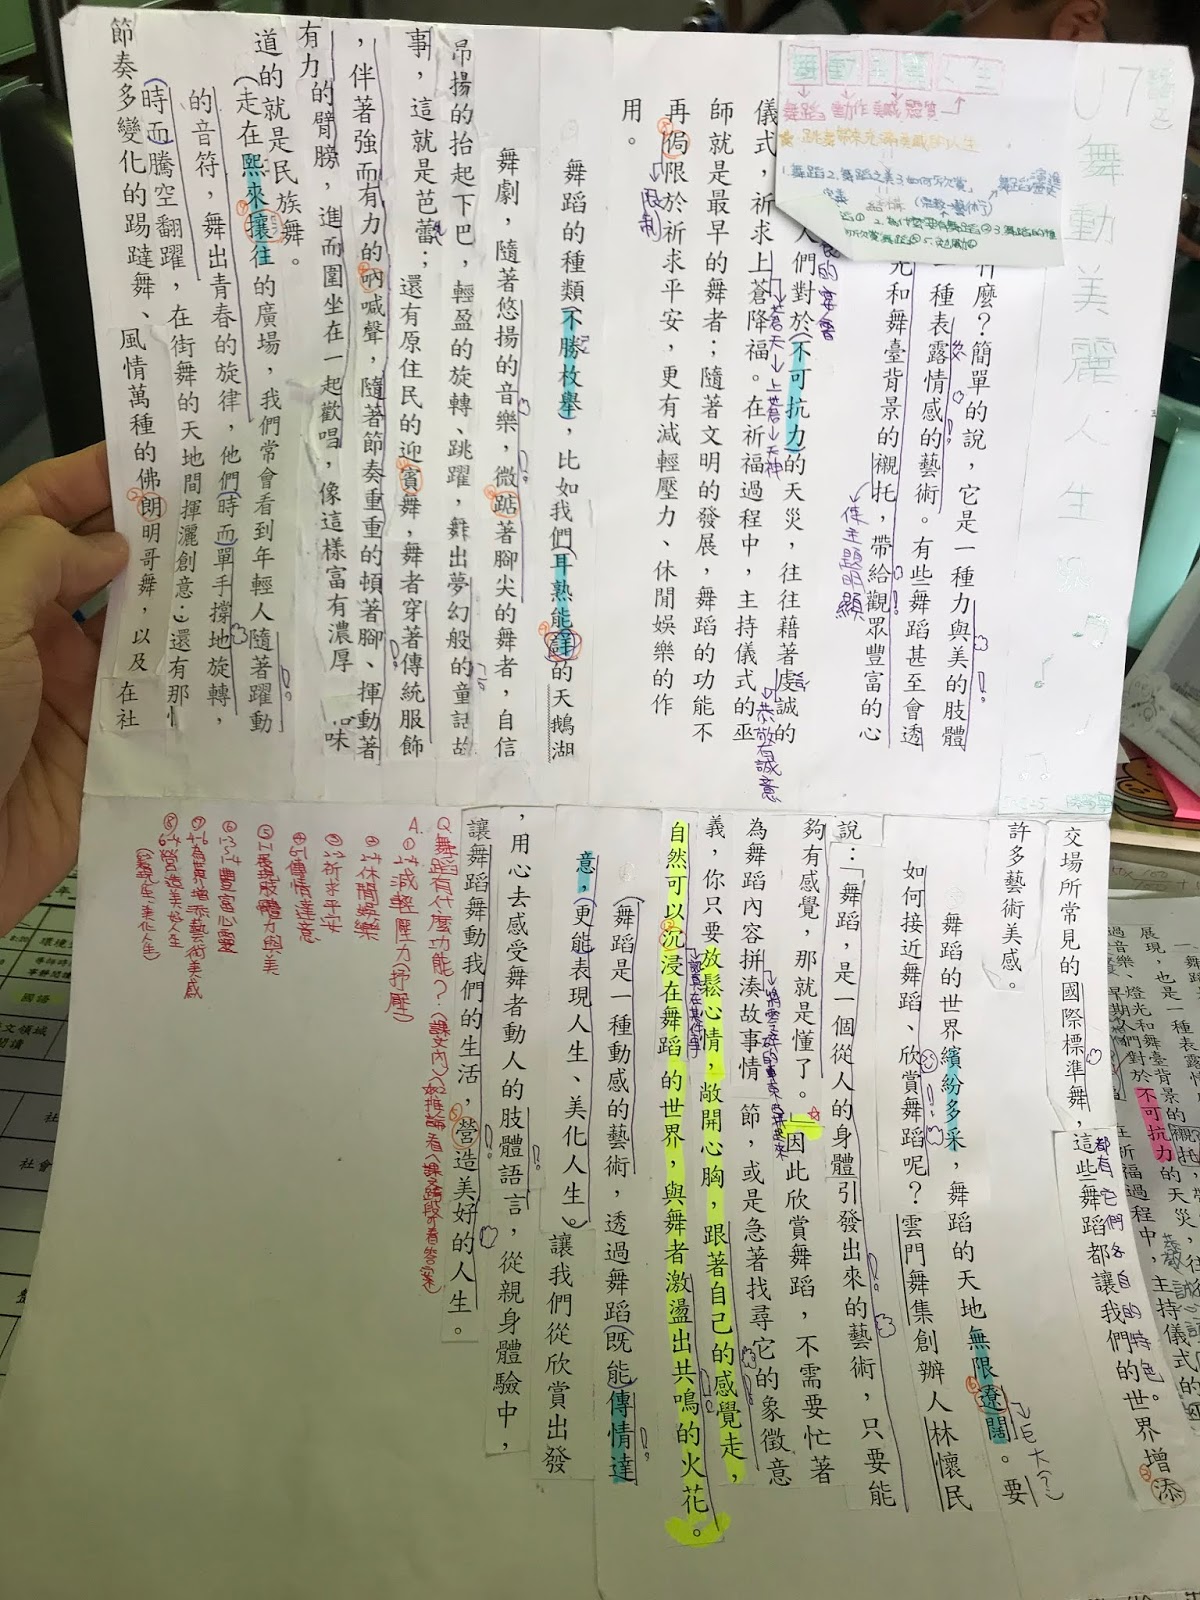 U7舞動美麗人生
什麼？簡單的說，它是一種力與美的肢體
一種表露情感的藝術。有些舞蹈甚至會透
光和舞臺背景的襯托，帶給觀眾豐富的心
使主題明顯
人們對於(不可抗力)的天災，往往藉著虔誠的
恭敬有誠意
儀式，祈求上蒼降福。在祈福過程中，主持儀式的巫
蒼天→上蒼→天神
師就是最早的舞者；隨著文明的發展，舞蹈的功能不
再侷限於祈求平安，更有減輕壓力、休閒娛樂的作
限制
用。
舞蹈的種類(不勝枚舉，比如我們(耳熟能詳的天鵝湖
舞劇，隨著悠揚的音樂，微踮著腳尖的舞者，自信
昂揚的抬起下巴，輕盈的旋轉、跳躍，舞出夢幻般的童話故
事，這就是芭蕾；還有原住民的迎賓舞，舞者穿著傳統服飾
，伴著強而有力的吶喊聲，隨著節奏重重的頓著腳、揮動著
有力的臂膀，進而圍坐在一起歡唱，像這樣富有濃厚
味
道的就是民族舞。
(走在熙來攘往的廣場，我們常會看到年輕人隨著躍動
的音符，舞出青春的旋律，他們(時而)單手撐地旋轉，
(時而騰空翻躍，在街舞的天地間揮灑創意；還有那
節奏多變化的踢躂舞、風情萬種的佛朗明哥舞，以及在社
交場所常見的國際標準舞，這些舞蹈都讓我們的世界增添
都有它們各自的特色。
許多藝術美感。
舞蹈的世界繽紛多采，舞蹈的天地無限遼闊。要
巨大
如何接近舞蹈、欣賞舞蹈呢？雲門舞集創辦人林懷民
說：「舞蹈，是一個從人的身體引發出來的藝術，只要能
夠有感覺，那就是懂了。」因此欣賞舞蹈，不需要忙著
為舞蹈內容拼湊故事情節，或是急著找尋它的象徵意
義，你只要放鬆心情，敞開心胸，跟著自己的感覺走，
自然可以沉浸在舞蹈的世界，與舞者激盪出共鳴的火花。
(舞蹈是一種動感的藝術，透過舞蹈(既能(傳情達
意，(更能表現人生、美化人生。讓我們從欣賞出發
，用心去感受舞者動人的肢體語言，從親身體驗中，
讓舞蹈舞動我們的生活，營造美好的人生。
Q舞蹈有什麼功能？
A.①2-4減輕壓力(抒壓)
②2-4休閒娛樂
③2-3祈求平安
④6-1傳情達意
⑤1-1展現肢體力與美
⑥1-3、1-4豐富心靈
⑦4-6為世界增添藝術美感
⑧6-4營造美好人生
(表現人生、美化人生)